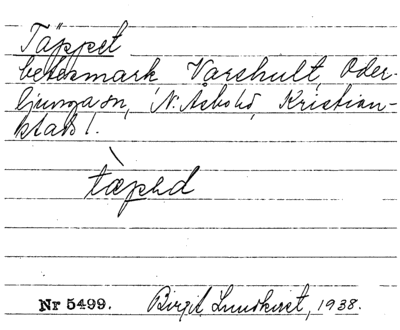 Täppet
betesmark Varshult, Oder-
ljunga sn, N. Åsbo hd, Kristian-
stads l.
tæpəd
Nr 5499. Birgit Lundkvist, 1938.